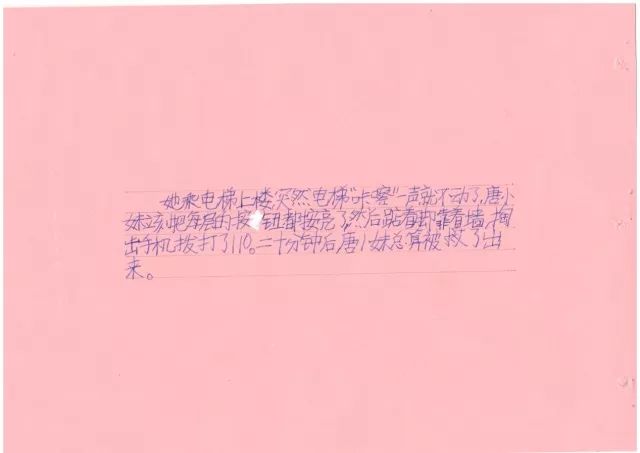 她乘电梯上楼突然电梯“咔嚓”一声就不动了,唐小
妹立刻把每层的按钮都按亮了,然后踮着脚靠着墙,掏
出手机拨打了110。二十分钟后,唐小妹总算被救了出
来。